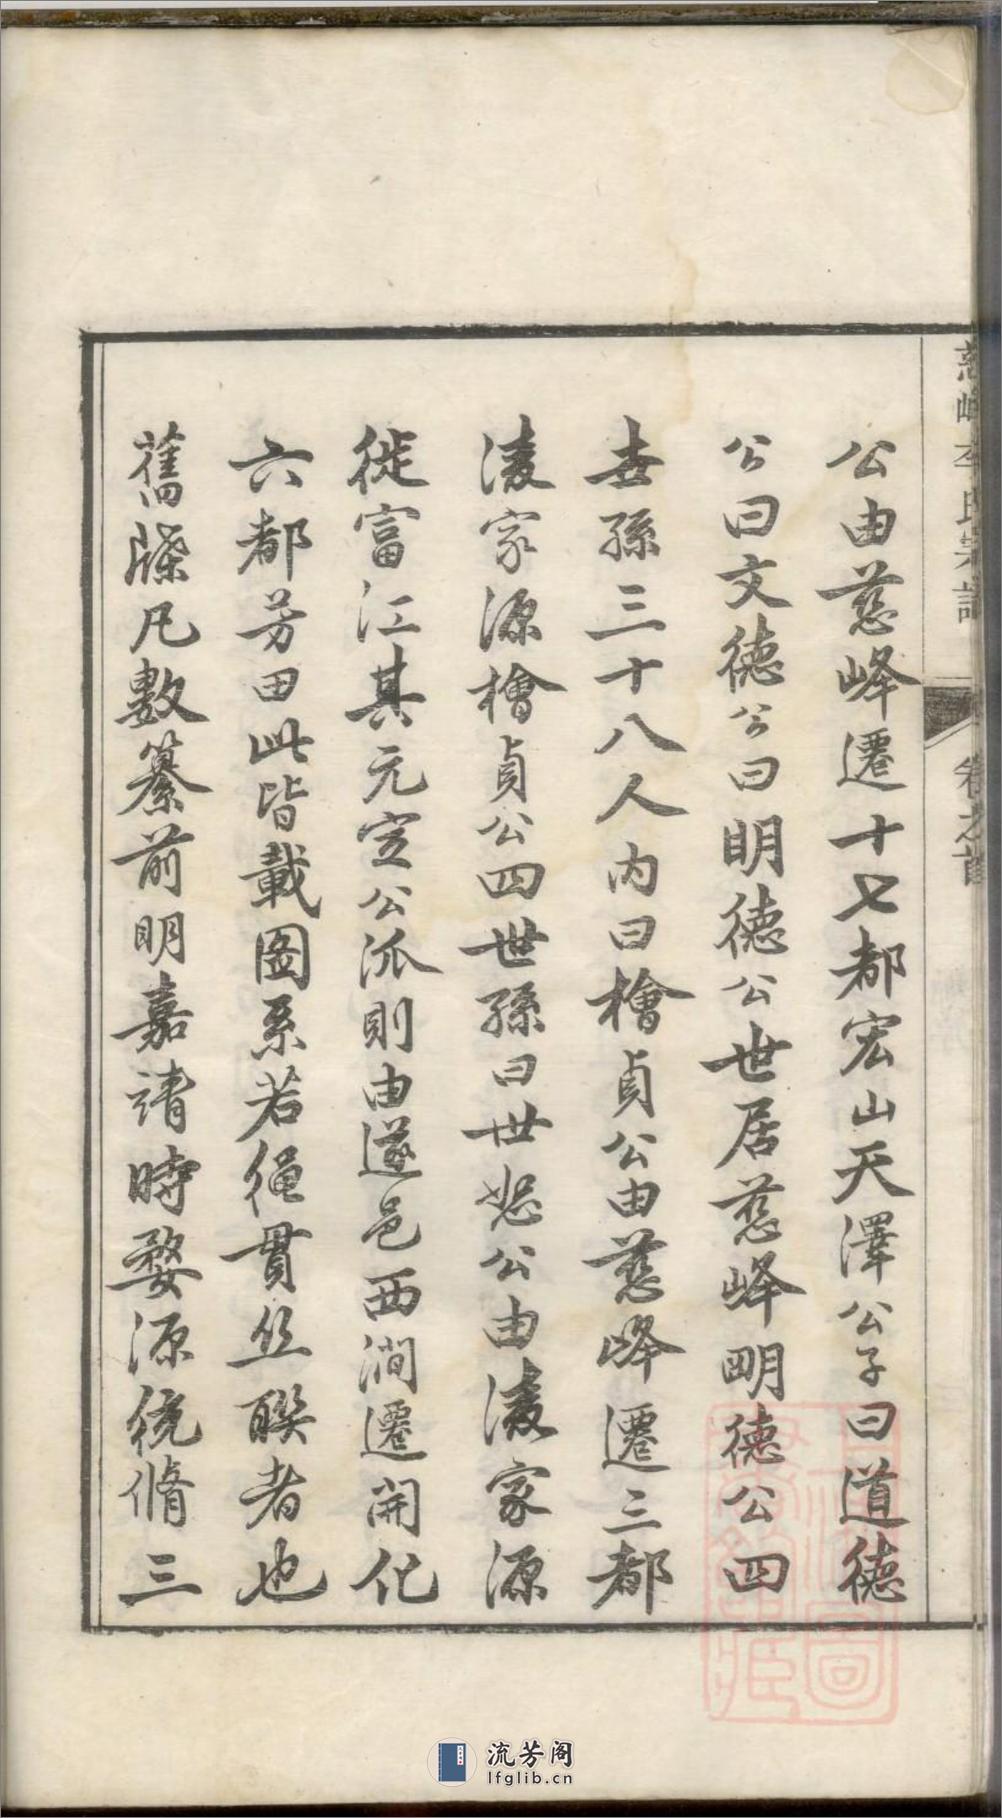 慈峰李氏宗譜
卷之首
公由慈峰遷十七都宏山天澤公子曰道德
公曰文德公曰明德公世居慈峰明德公四
世孫三十八人内曰檜貞公由慈峰遷三都
淩家源檜貞公四世孫曰世恕公由淩家源
徙富江其元定公派則由遂邑西澗遷開化
六都芳田此皆載圖系若繩貫丝聯者也
舊牒凡數纂前明嘉靖時婺源統脩三
流芳阁
lfglib.cn